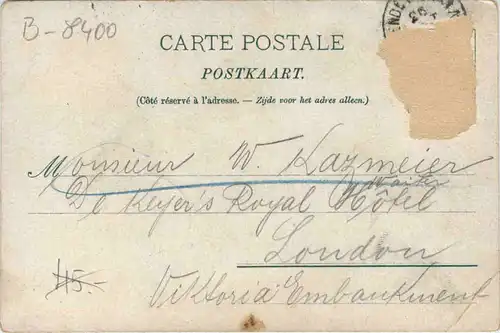 B-8400
26
CARTE POSTALE
POSTKAART.
(Côté réservé à l'adresse. — Zijde voor het adres alleen.)
Monsieur W. Kazmeier
Waiter
De Keyser's Royal Hôtel
London
45.-
Viktoria Embankment